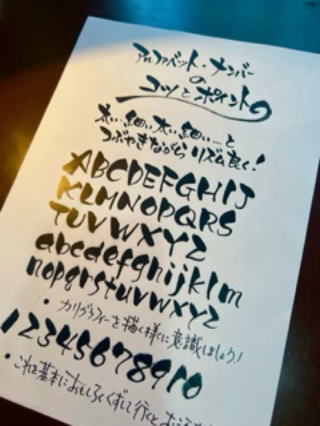 アルファベット・ナンバー
の
コツとポイント
太い細い太い細い…と
つぶやきながらリズム良く!
ABCDEFGHIJ
KLMNOPQRS
TUVWXYZ
abcdefghijklm
nopqrstuvwxyz
・カリグラフィーを描く様に意識しましょう!
12345678910
・これを基本におもしろくくずして行くと